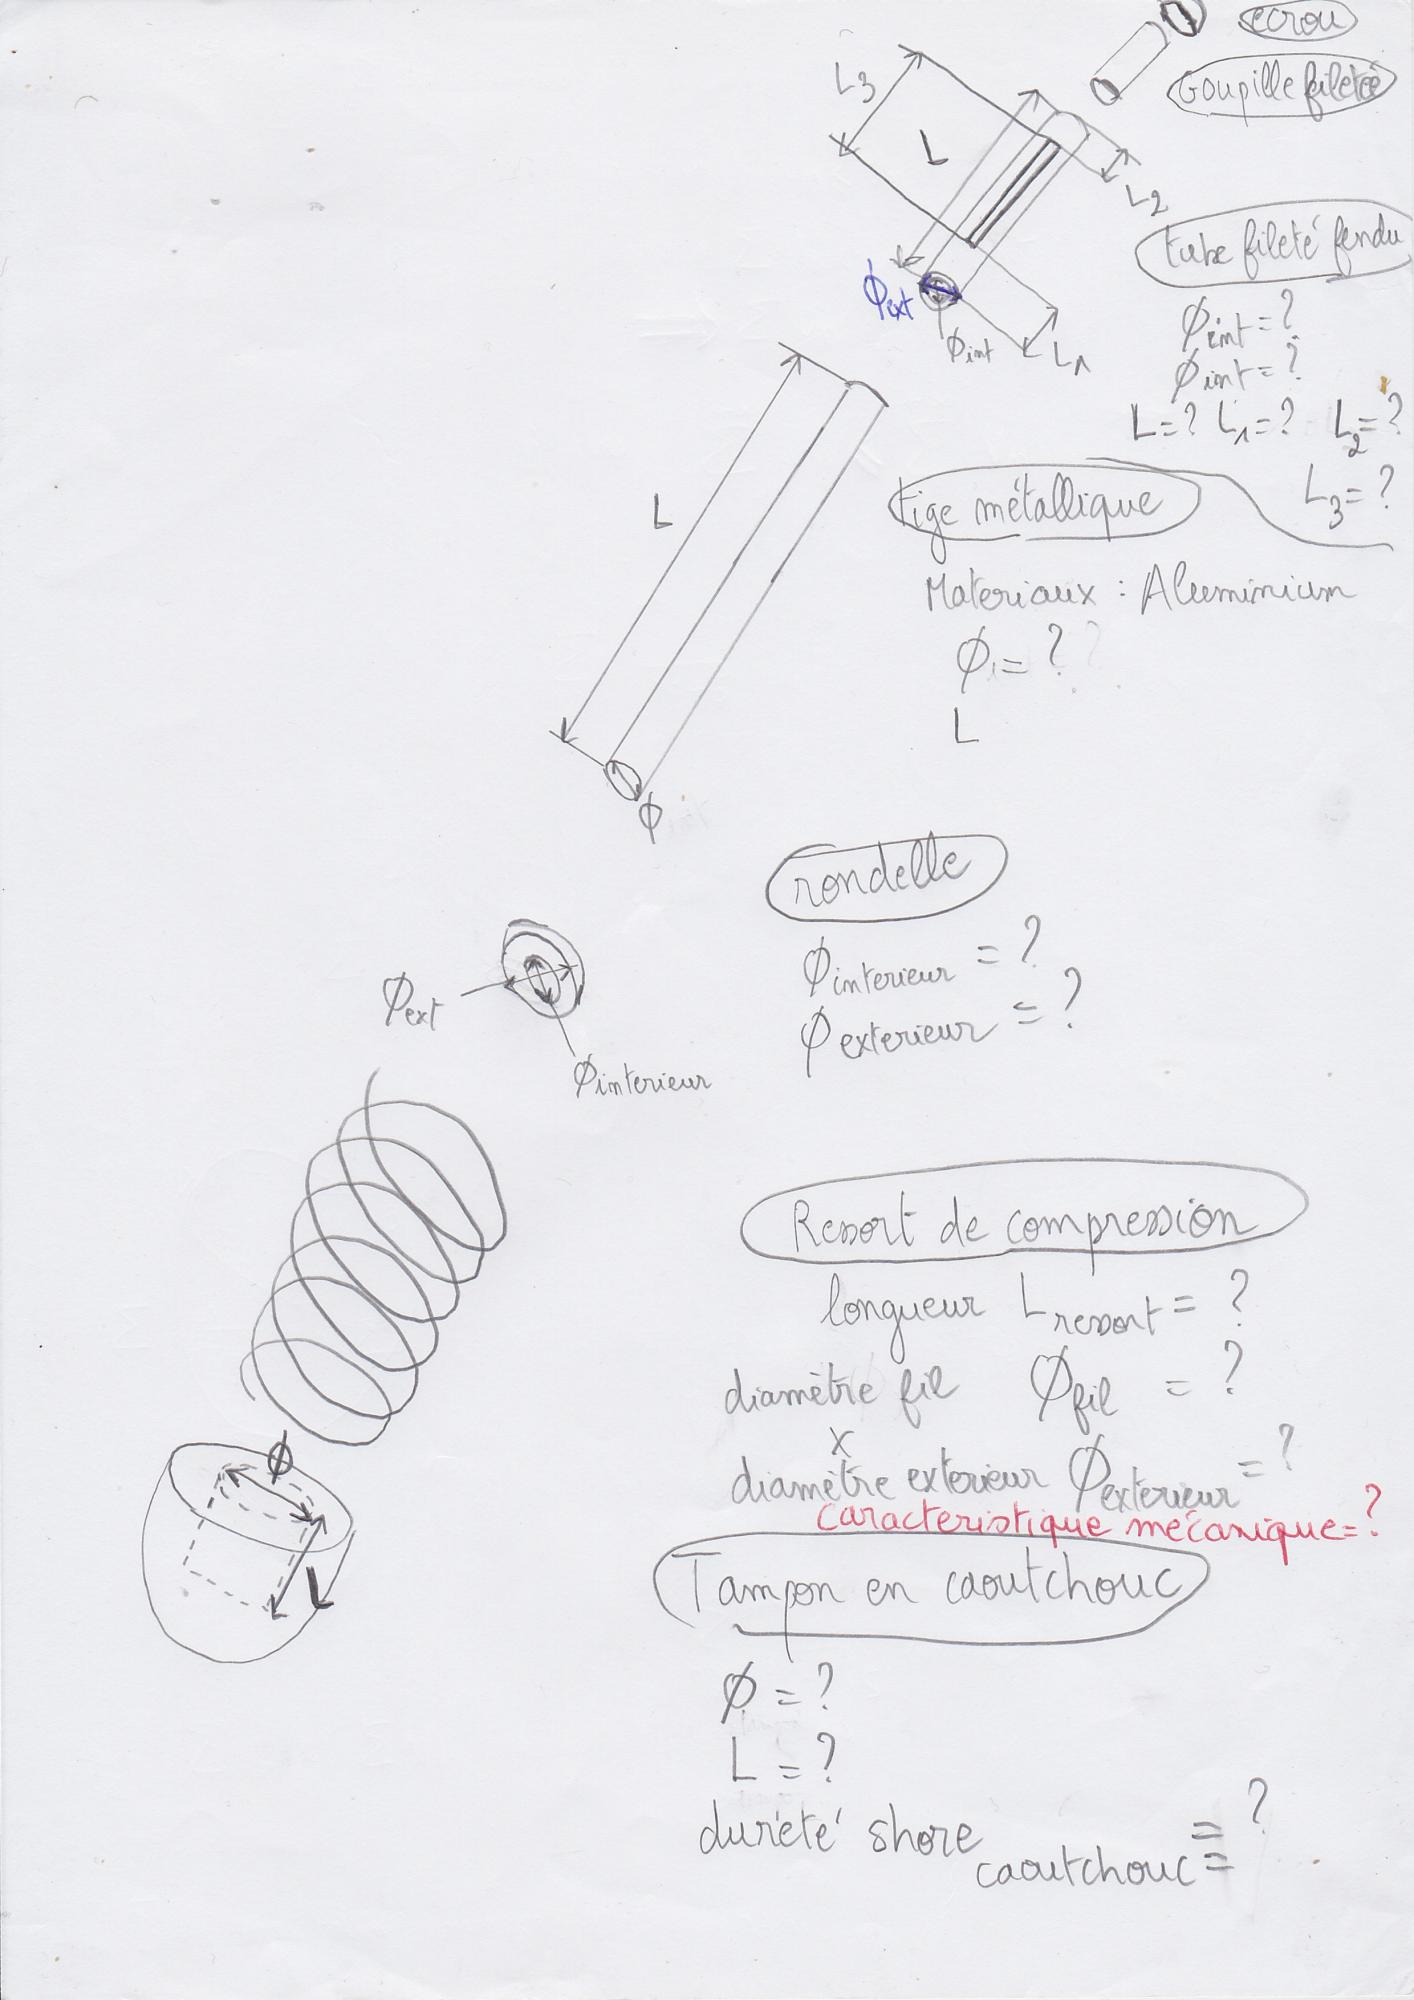 ecrou
Goupille filetée
L3
L
L2
tube fileté fendu
Φext
Φint
L1
Φint = ?
Φint = ?
L = ? L1 = ? L2 = ?
L3 = ?
L
tige métallique
Materiaux : Aluminium
Φ = ?
L
Φ
rondelle
Φinterieur = ?
Φexterieur = ?
Φext
Φinterieur
Ressort de compression
longueur Lressort = ?
diamètre fil Φfil = ?
x
diamètre exterieur Φexterieur = ?
caracteristique mécanique = ?
Φ
L
Tampon en caoutchouc
Φ = ?
L = ?
durété shore caoutchouc = ?